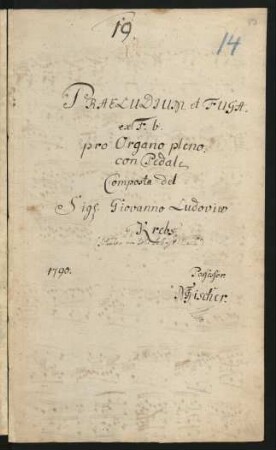 19.
14
PRAELUDIUM et FUGA.
ex F. b.
pro Organo pleno,
con Pedale
Composta del
Sigl. Giovanno Ludovico
Krebs.
1790.
Possessor
MFischer.